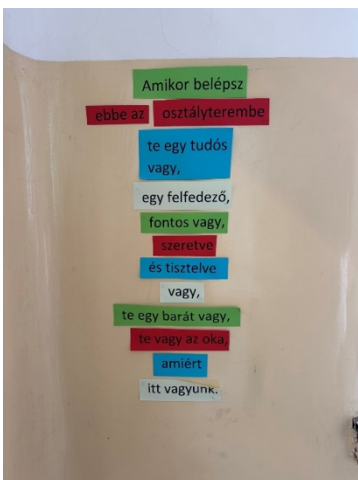 Amikor belépsz
ebbe az osztályterembe
te egy tudós
vagy,
egy felfedező,
fontos vagy,
szeretve
és tisztelve
vagy,
te egy barát vagy,
te vagy az oka,
amiért
itt vagyunk.